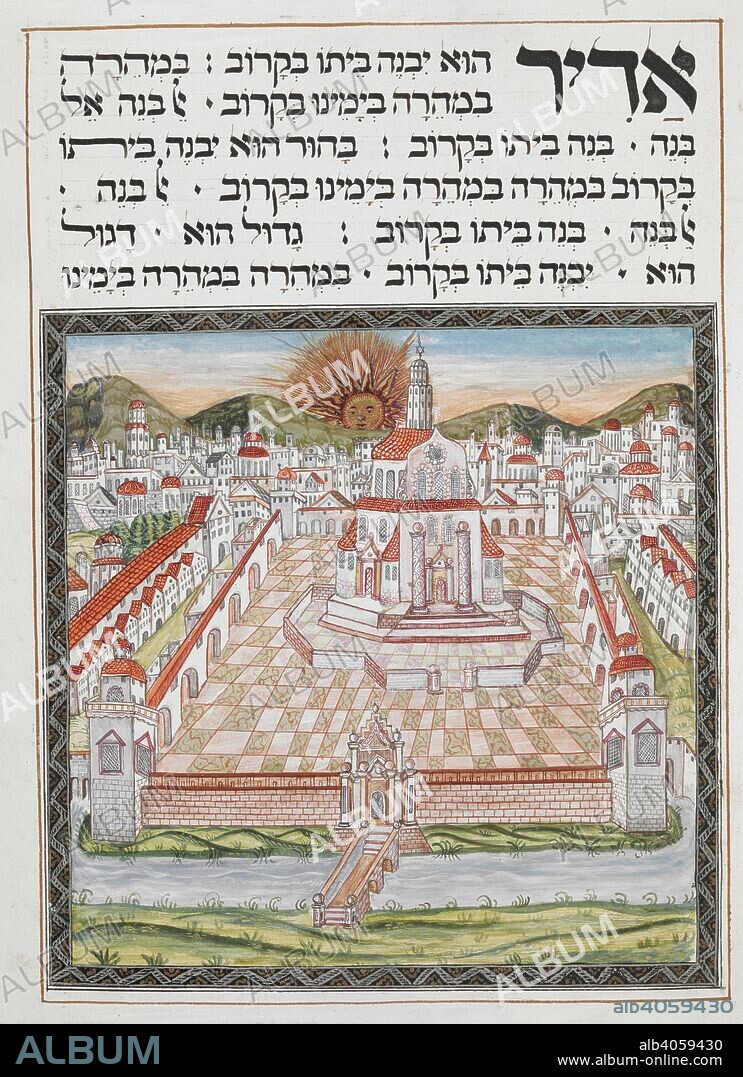 אַדִיר הוּא יִבְנֶה בֵיתוֹ בְּקָרוֹב : בִּמְהֵרָה
בִּמְהֵרָה בְיָמֵינוּ בְּקָרוֹב · ﭏ בְּנֵה אֵל
בְּנֵה · בְּנֵה בֵיתוֹ בְּקָרוֹב : בָּחוּר הוּא יִבְנֶה בֵיתוֹ
בְּקָרוֹב בִּמְהֵרָה בִּמְהֵרָה בְּיָמֵינוּ בְּקָרוֹב · ﭏ בְּנֵה ·
ﭏ בְּנֵה · בְּנֵה בֵיתוֹ בְּקָרוֹב : גָּדוֹל הוּא · דָּגוּל
הוּא · יִבְנֶה בֵיתוֹ בְּקָרוֹב · בִּמְהֵרָה בִּמְהֵרָה בְּיָמֵינוּ
ALBUM
alb4059430
ALBUM
alb4059430
www.album-online.com